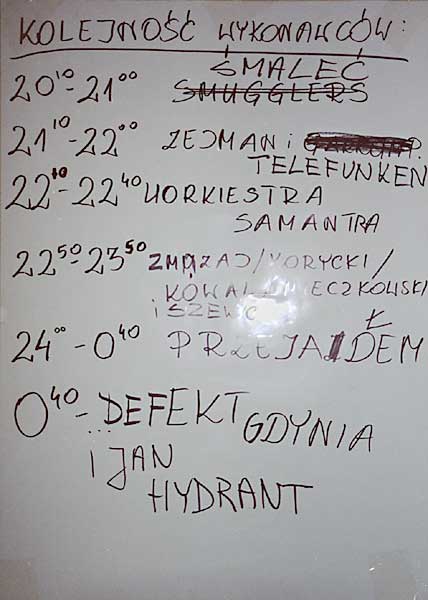 KOLEJNOŚĆ WYKONAWCÓW:
ŚMALEĆ
20¹⁰-21⁰⁰ SMUGGLERS
21¹⁰-22⁰⁰ ZEJMAN i
TELEFUNKEN
22¹⁰-22⁴⁰ UORKIESTRA
SAMANTRA
22⁵⁰-23⁵⁰ ZMĄZAJ/YORYCKI/
i SZEWC
Ł
24⁰⁰ - 0⁴⁰ PRZEJAJDEM
0⁴⁰- DEFEKT GDYNIA
... i JAN
HYDRANT